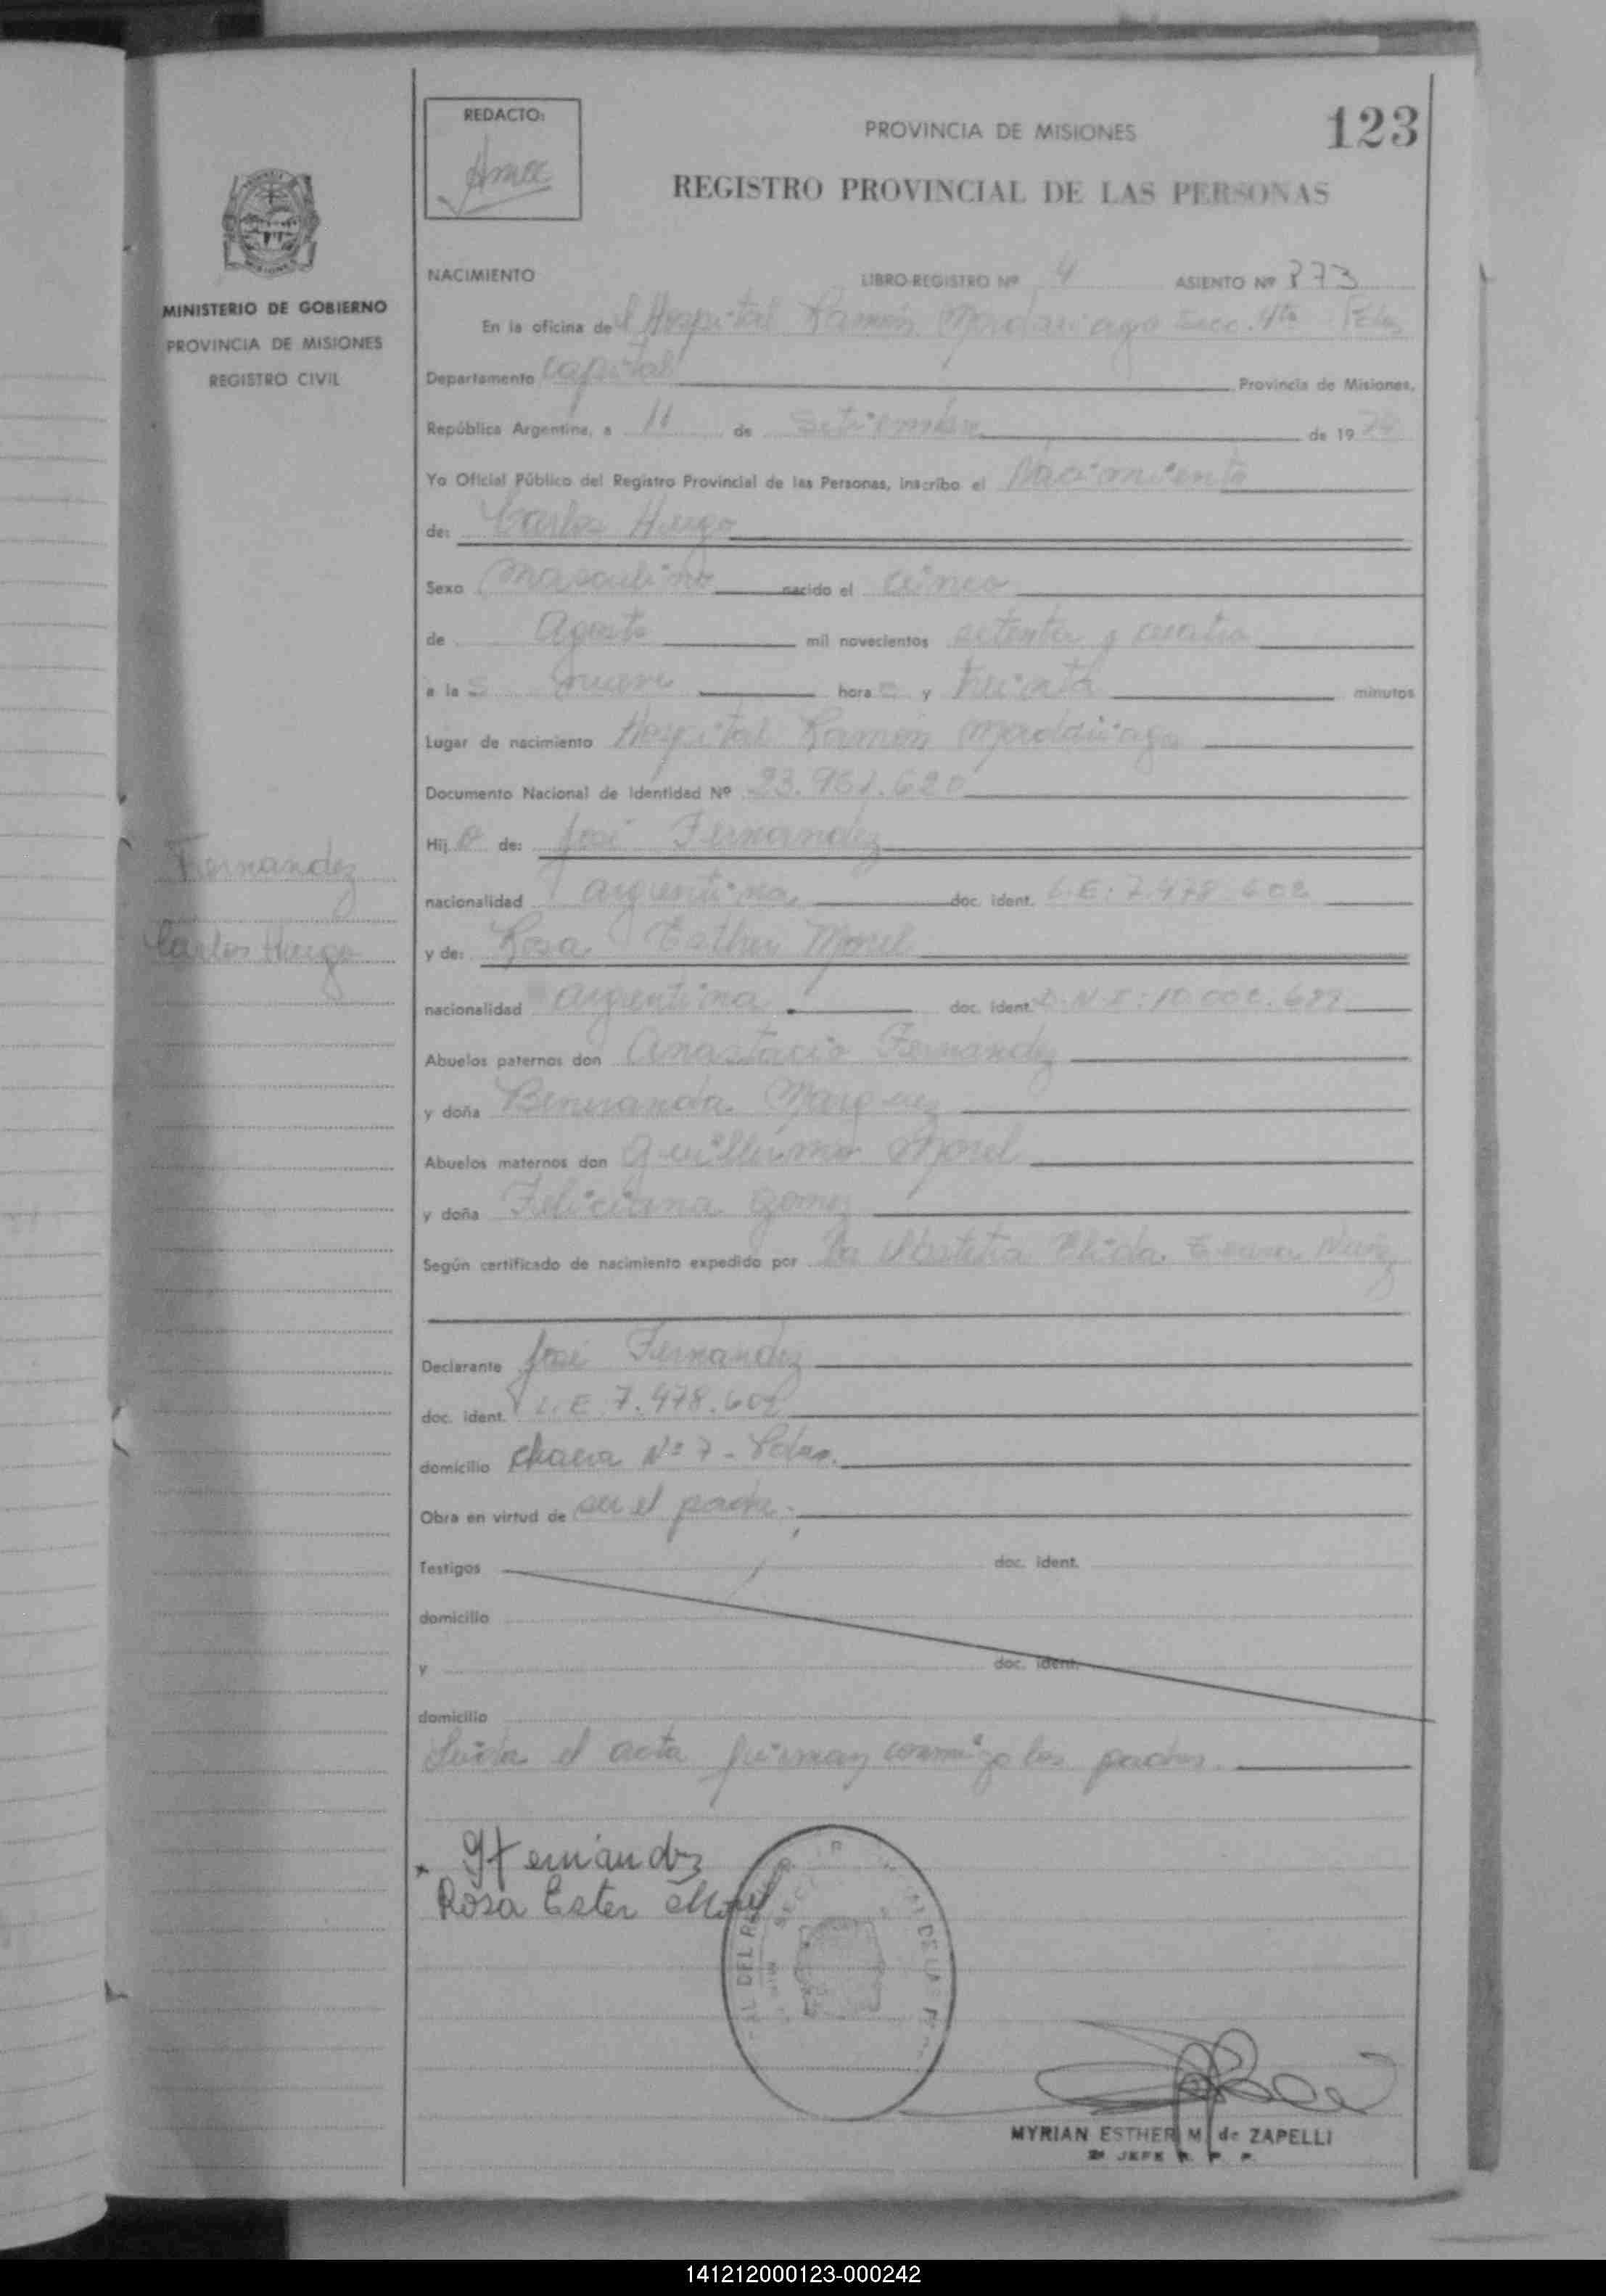 REDACTO:
PROVINCIA DE MISIONES
123
REGISTRO PROVINCIAL DE LAS PERSONAS
MINISTERIO DE GOBIERNO
PROVINCIA DE MISIONES
REGISTRO CIVIL
NACIMIENTO LIBRO-REGISTRO Nº 4 ASIENTO Nº 373
En la oficina del Hospital Ramón Madariaga Secc. 4ta Pdas
Departamento Capital Provincia de Misiones,
República Argentina, a 11 de Setiembre de 1974
Yo Oficial Público del Registro Provincial de las Personas, inscribo el Nacimiento
de: Carlos Hugo
Sexo Masculino nacido el cinco
de Agosto mil novecientos setenta y cuatro
a las nueve horas y treinta minutos
Lugar de nacimiento Hospital Ramón Maddariaga
Documento Nacional de Identidad Nº 23.951.620
Hijo de: José Fernandez
Fernandez
nacionalidad argentina doc. ident. L.E: 7.478.602
Carlos Hugo
y de: Rosa Esther Morel
nacionalidad argentina doc. ident. D.N.I: 10.002.699
Abuelos paternos don Anastacio Fernandez
y doña Marquez
Abuelos maternos don Guillermo Morel
y doña Feliciana Gomez
Según certificado de nacimiento expedido por La Obstetra Elida
Declarante José Fernandez
doc. ident. L.E. 7.478.602
domicilio Chacra Nº 7 - Pdas.
Obra en virtud de ser el padre.
Testigos doc. ident.
domicilio
y doc. ident.
domicilio
Leida el acta firman conmigo los padres.
Fernández
Rosa Ester Morel
MYRIAN ESTHER M. de ZAPELLI
2º JEFE R. P. P.
141212000123-000242